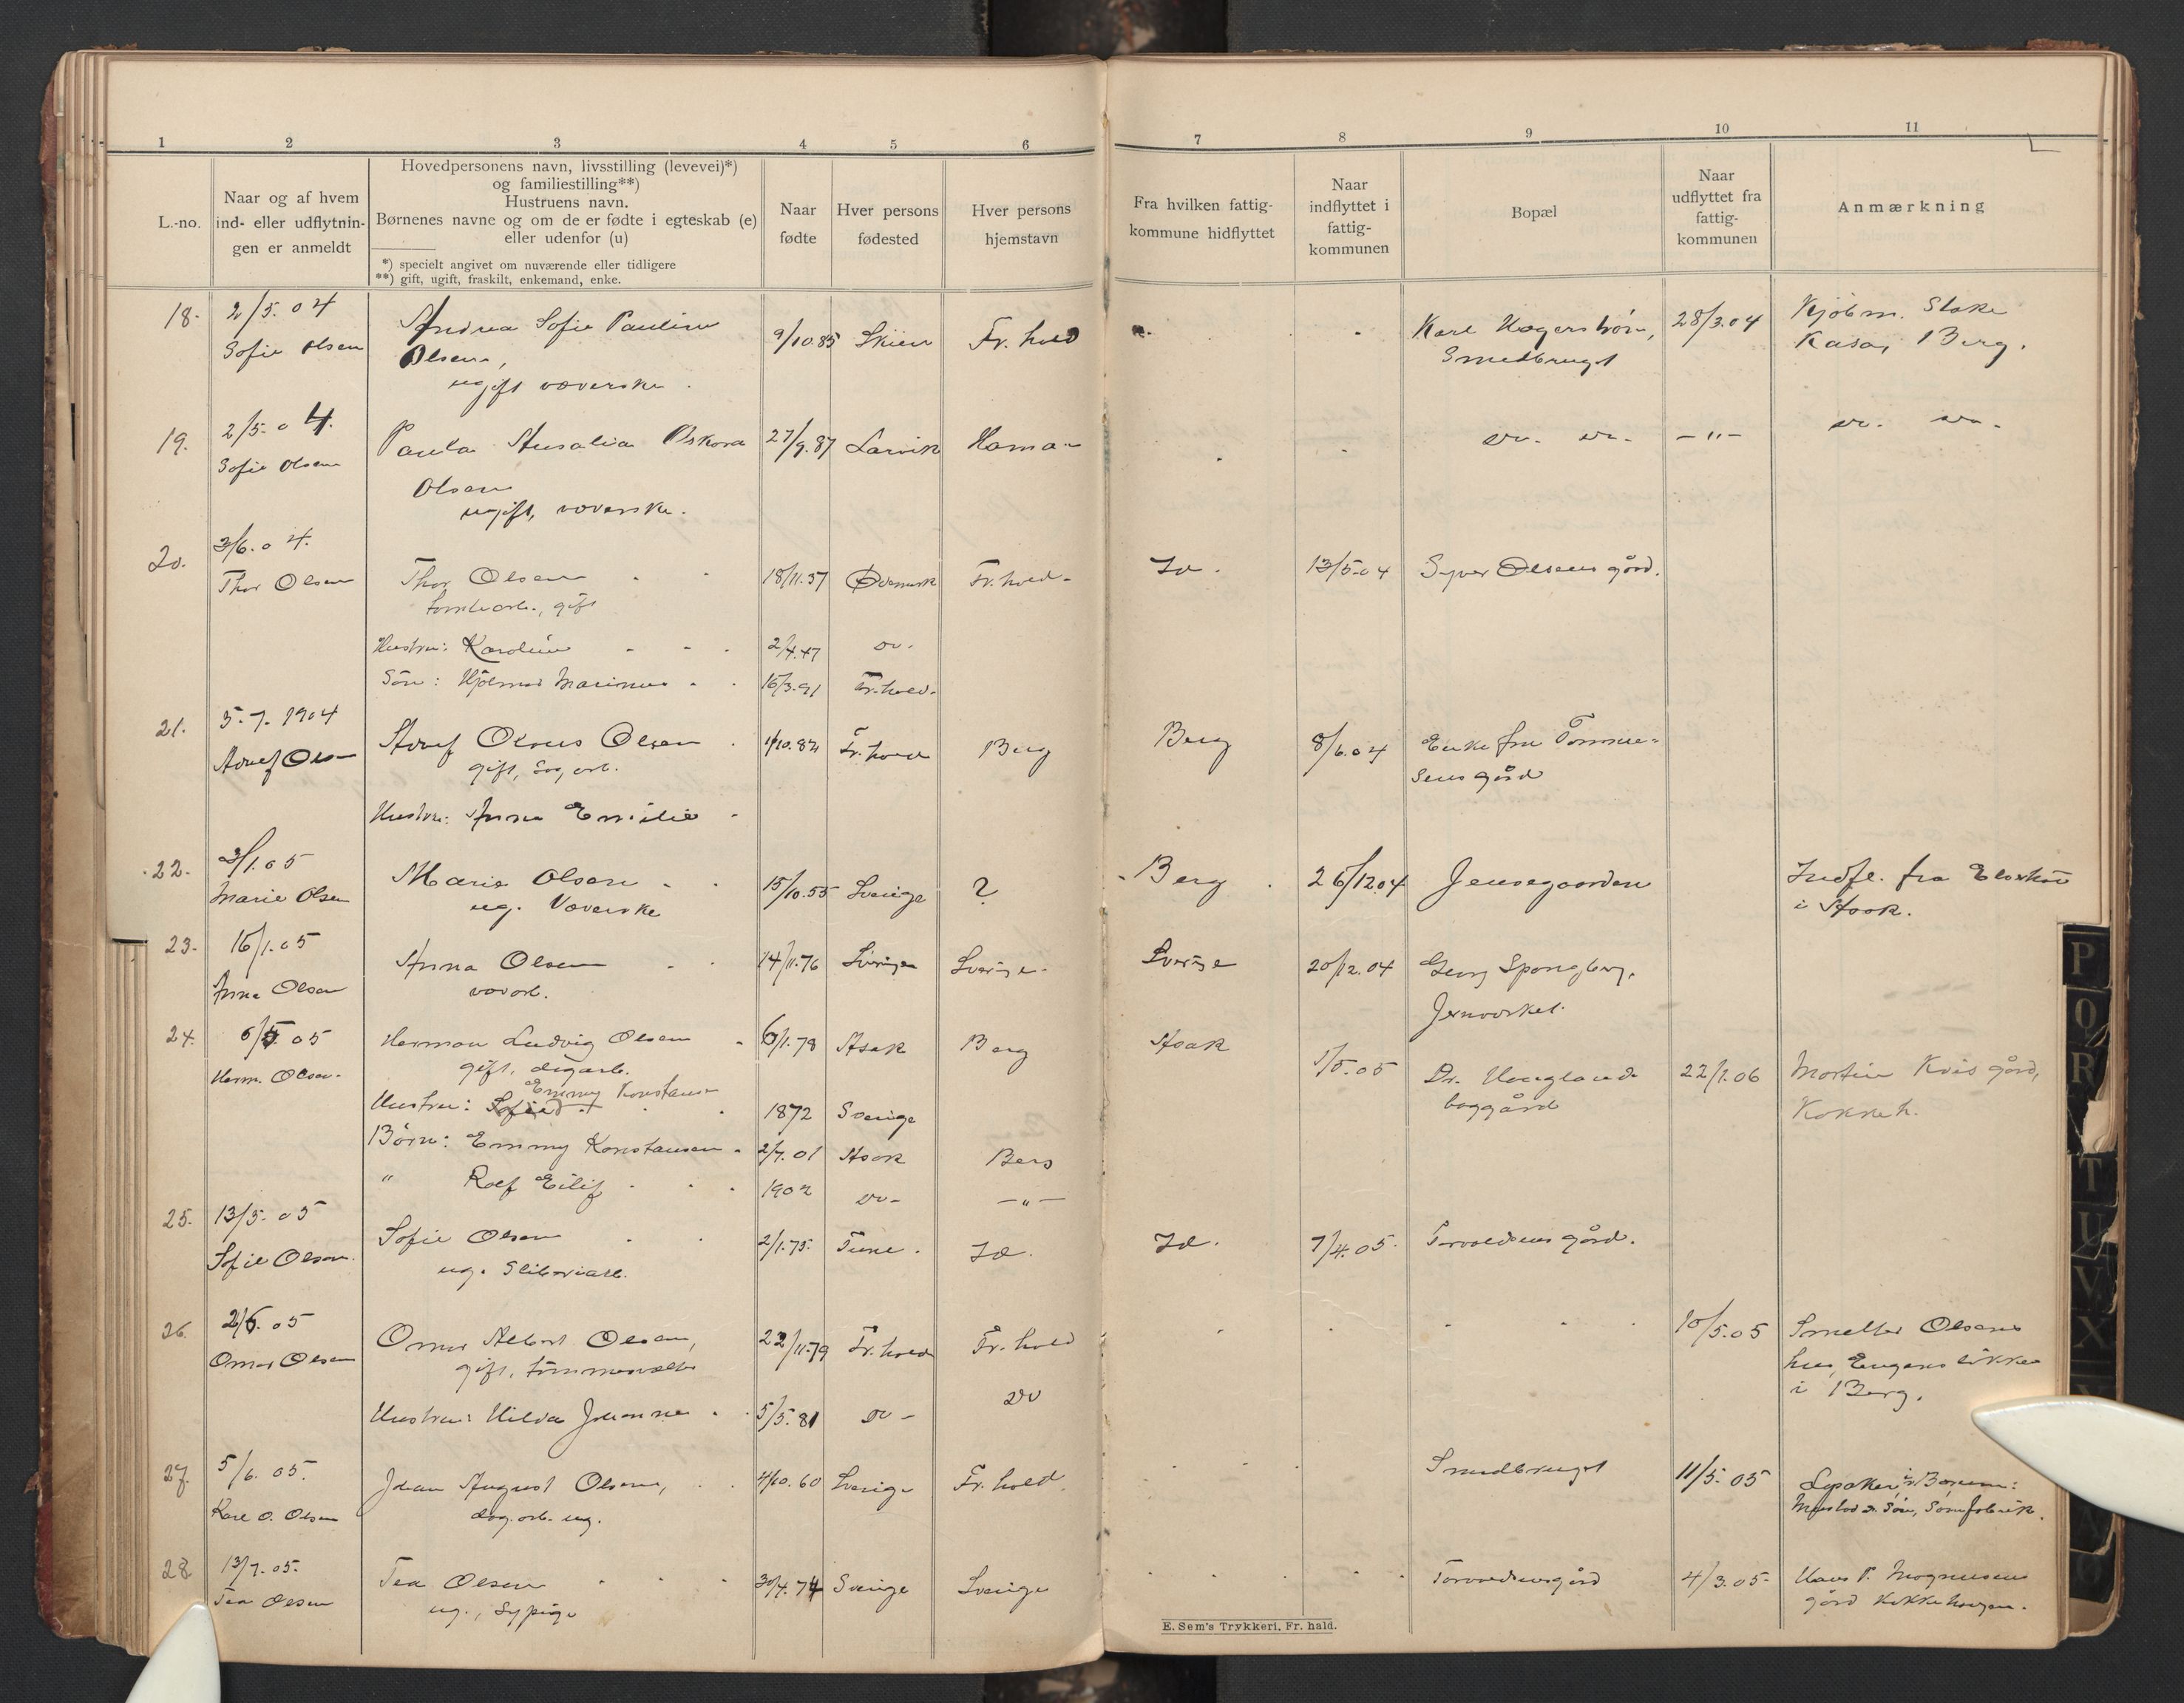 1 2 3 4 5 6 7 8 9 10 11
L.-no.
Naar og af hvem
ind- eller udflytnin-
gen er anmeldt
Hovedpersonens navn, livsstilling (levevei)*)
og familiestilling**)
Hustruens navn.
Børnenes navne og om de er fødte i egteskab (e)
eller udenfor (u)
*) specielt angivet om nuværende eller tidligere
**) gift, ugift, fraskilt, enkemand, enke.
Naar
fødte
Hver persons
fødested
Hver persons
hjemstavn
Fra hvilken fattig-
kommune hidflyttet
Naar
indflyttet i
fattig-
kommunen
Bopæl
Naar
udflyttet fra
fattig-
kommunen
Anmærkning
18. 2/5.04 Andrea Sofie Pauline 9/10.85 Skien Fr. hald Karl 28/3.04 Kjøbm. Stake
Sofie Olsen Olsen, Smedbruget Kasa, Berg.
ugift væverske.
19. 2/5.04. Paula 27/9.87 Larvik do. do. -"- do. do.
Sofie Olsen Olsen
ugift, væverske.
20. 3/6.04. Thor Olsen 18/11.37 Ødemark Fr. hald. Id. 13/5.04 Syver Olsens gård.
Thor Olsen tomtearb., gift
Hustru: Karoline 2/4.47 do.
Søn: Hjalmar Marinius 16/3.91 Fr. hald.
21. 5.7.1904 Adolf Olaus Olsen 1/10.82 Fr. hald Berg Berg 8/6.04 Enkefru
Adolf Olsen gift, sagarb. sens gård
Hustru: Anna Emilie
22. 3/1.05 Marie Olsen 15/10.55 Sverige ? Berg 26/12.04 Jensegaarden Indfl. fra
Marie Olsen ug. Væverske i Asak.
23. 16/1.05 Anna Olsen 14/11.76 Sverige Sverige. Sverige 20/12.04 Georg Spongberg,
Anna Olsen Jernverket.
24. 6/5.05 Herman Ludvig Olsen 6/1.78 Asak Berg Asak 1/5.05 Dr. Hougland 22/1.06 Martin Kvisgård,
Herm. Olsen. gift, dagarb. baggård Kokkeh.
Hustru: Sofie Emmy Konstanse 1872 Sverige
Børn: Emmy Konstanse 2/7.01 Asak Berg
" Rolf Eilif 1902 do. -"-
25. 13/5.05 Sofie Olsen 2/1.75. Tune. Id. Id. 7/4.05. Torvaldsens gård.
Sofie Olsen. ug. Sliberiarb.
26. 2/6.05 Omar Albert Olsen, 22/11.79 Fr. hald Fr. hald 10/5.05 Olsens
Omar Olsen gift, hus, Engansløkken
i Berg.
Hustru: Hilda Johanne 5/5.81 do. do
27. 5/6.05. Johan August Olsen, 4/10.60 Sverige Fr. hald. Smedbruget 11/5.05 Lysaker i V. Bærum:
Karl O. Olsen dag.arb. ug. Mustad & Søn, Sømfabrik.
28. 13/7.05. Tea Olsen 30/4.74 Sverige Sverige Torvaldsensgård 4/3.05 Hans P. Magnusens
Tea Olsen ug., Sypige gård Kokkehaugen.
E. Sem's Trykkeri. Fr. hald.
P
Q
R
T
U
V
X